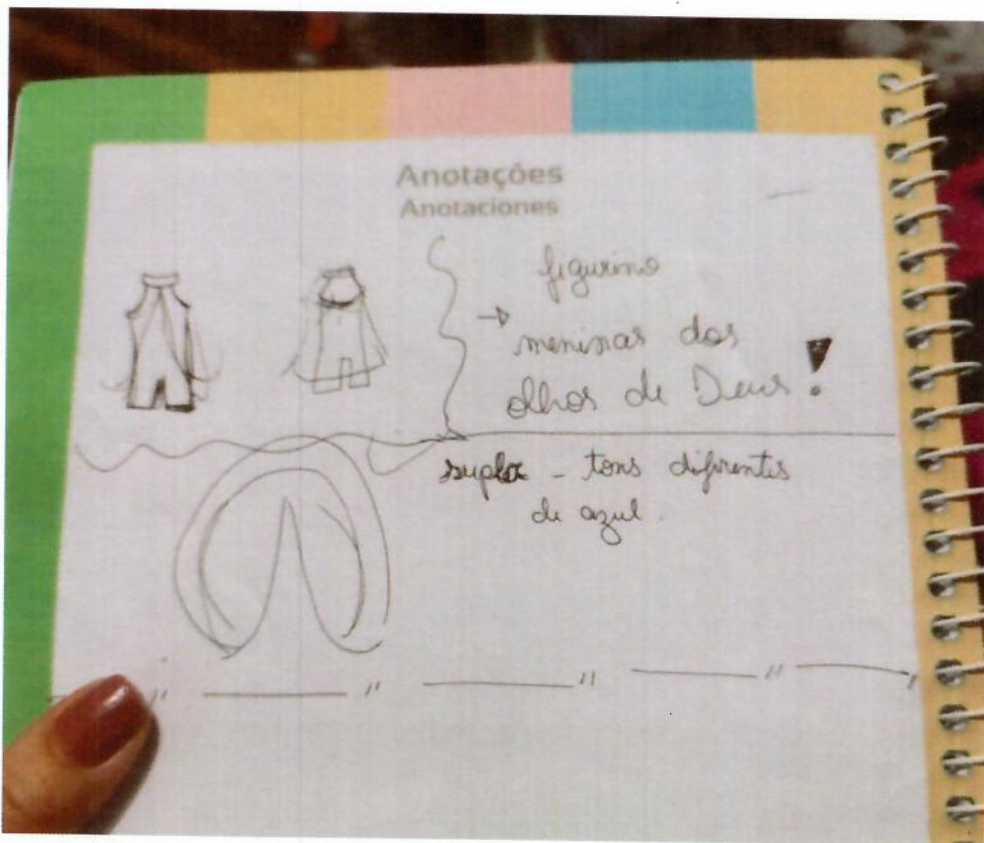 Anotações
Anotaciones
figurino
→ meninas dos
olhos de Deus!
suplex - tons diferentes
de azul.